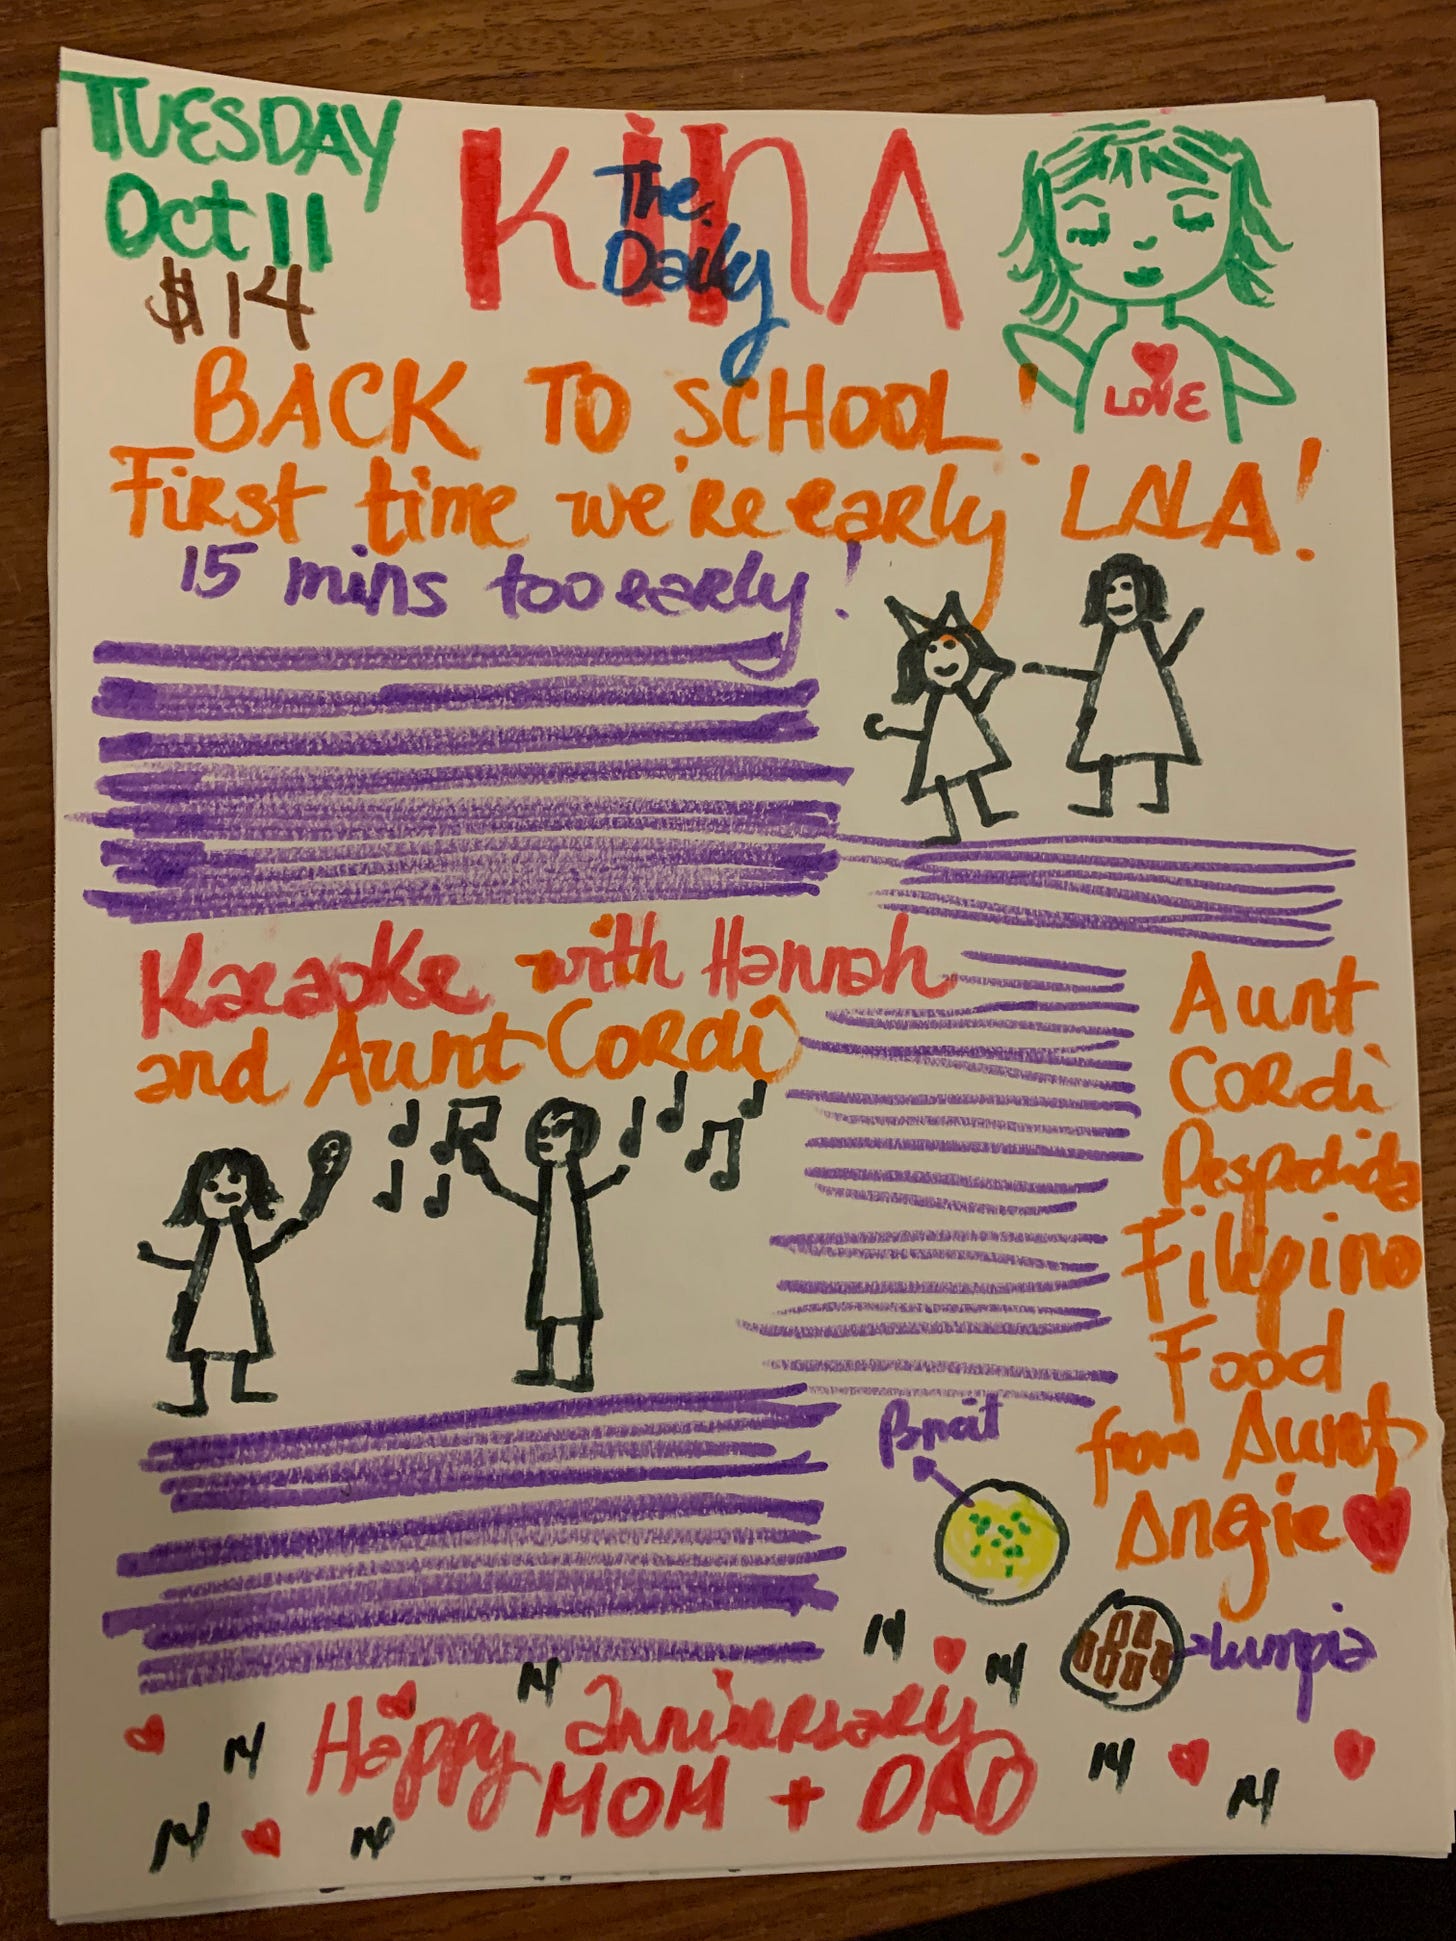 TUESDAY
Oct 11
$14
The Daily
KiNA
LOVE
BACK TO SCHOOL!
First time we're early LALA!
15 mins too early!
Karaoke with Hannah
and Aunt Cordi
Aunt
Cordi
Despedida
Filipino
Food
from Aunt
Angie
Pancit
lumpia
14
14
14
Happy anniversary
MOM + DAD
14
14
14
14
14